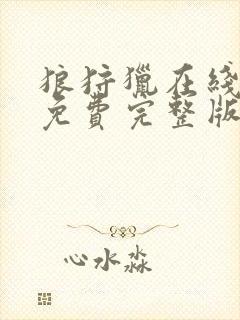 狼狩獵在綫
免費完整版
心水淼